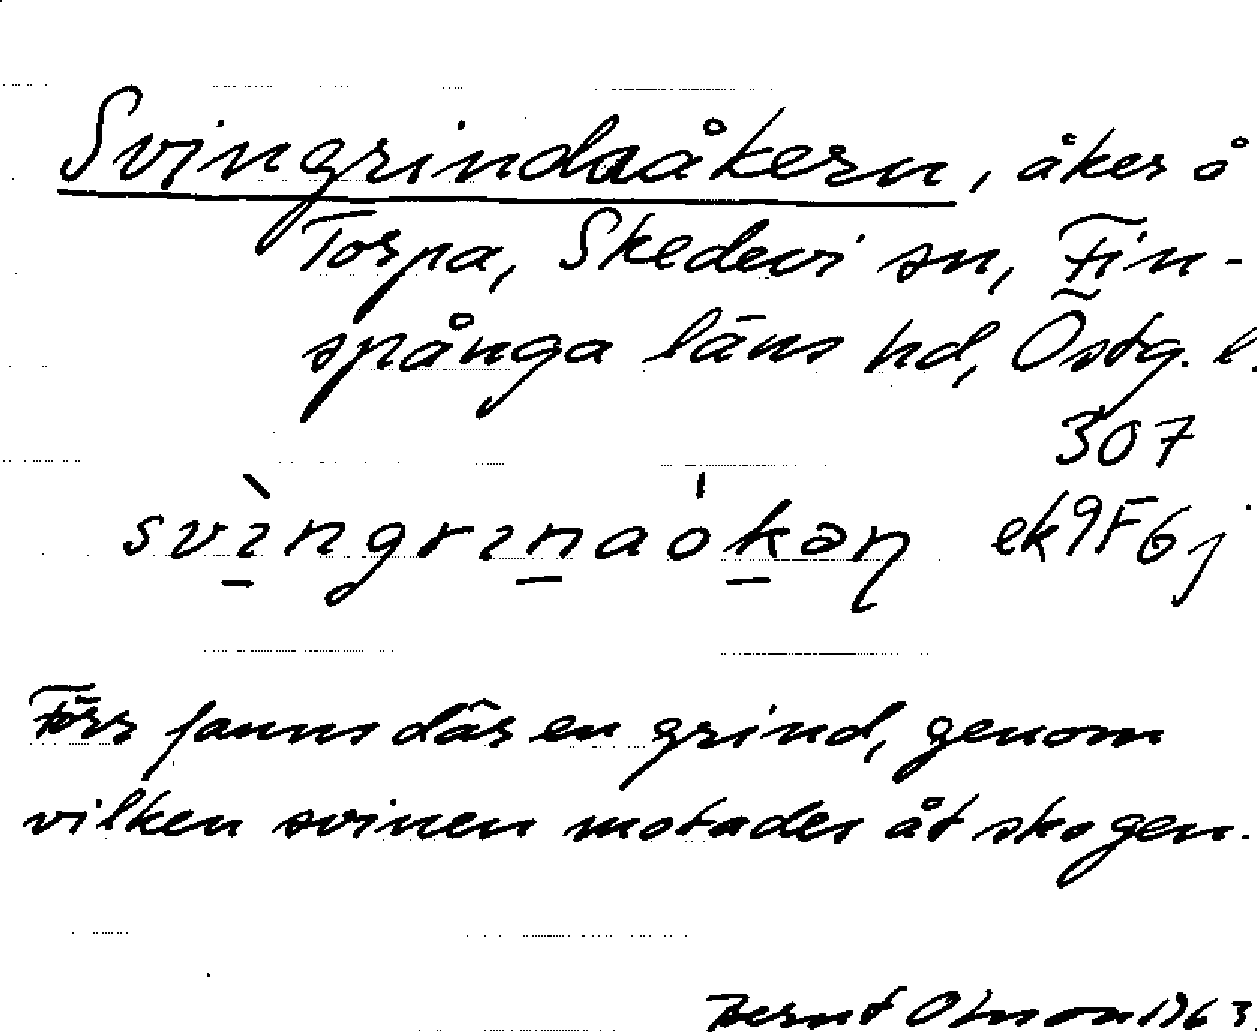 Svingrindaåkern, åker å
Torpa, Skedevi sn, Fin-
spånga läns hd, Östg. l.
307
svìngrınaókəɳ ek9F6j
Förr fanns där en grind, genom
vilken svinen motades åt skogen.
Bernt Olsson 1963